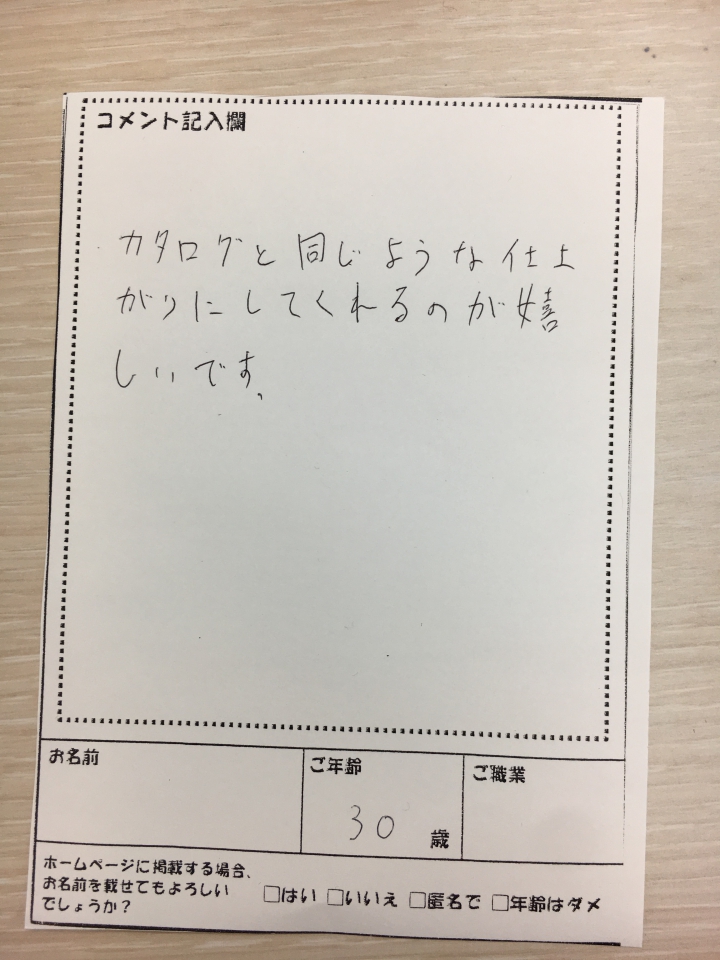 コメント記入欄
カタログと同じような仕上
がりにしてくれるのが嬉
しいです、
お名前
ご年齢
ご職業
30 歳
ホームページに掲載する場合、
お名前を載せてもよろしい
でしょうか?
□はい □いいえ □匿名で □年齢はダメ